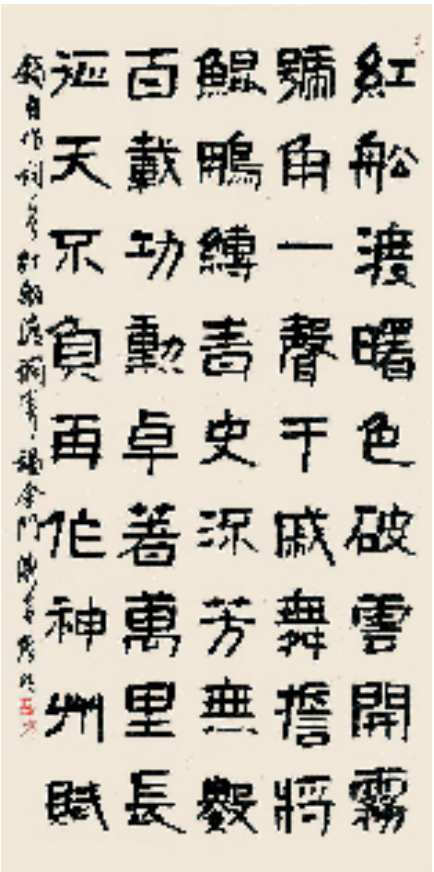 紅船渡曙色破雲開霧
號角一聲干戚舞擔將
鯤鵬縛青史流芳無數
百載功勳卓著萬里長
征天不負再作神州賦
錄自作詞紅船渡調寄謁金門